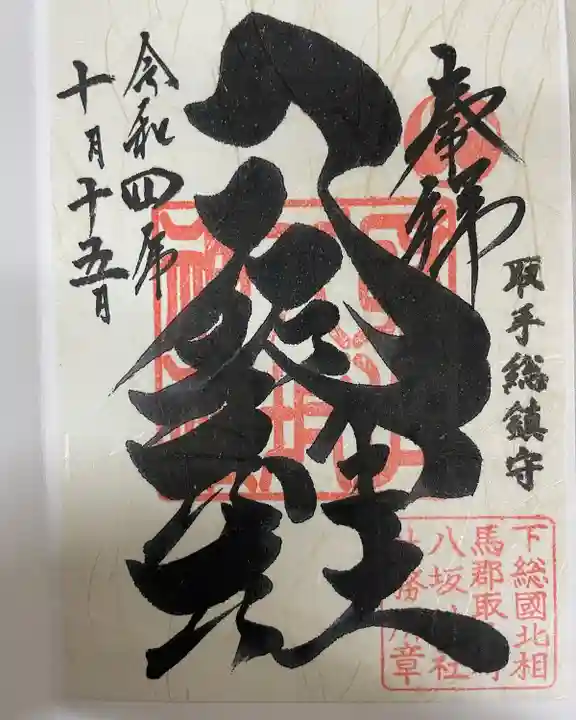 奉拝
取手総鎮守
八坂神社
令和四年
十月十五日
下総國北相
馬郡取
八坂神社
社務所章